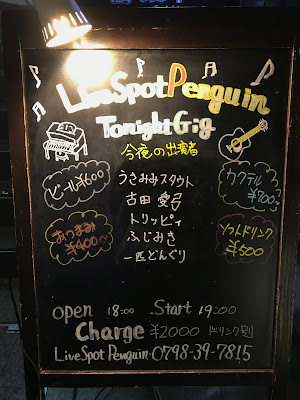 LiveSpot Penguin
Tonight Gig
今夜の出演者
ビール¥600
おつまみ
¥400~
うさみみスタウト
古田 愛弓
トリッピィ
ふじみき
一匹どんぐり
カクテル
¥700~
ソフトドリンク
¥500
open 18:00 Start 19:00
Charge ¥2000 ドリンク別
LiveSpot Penguin・0798-39-7815